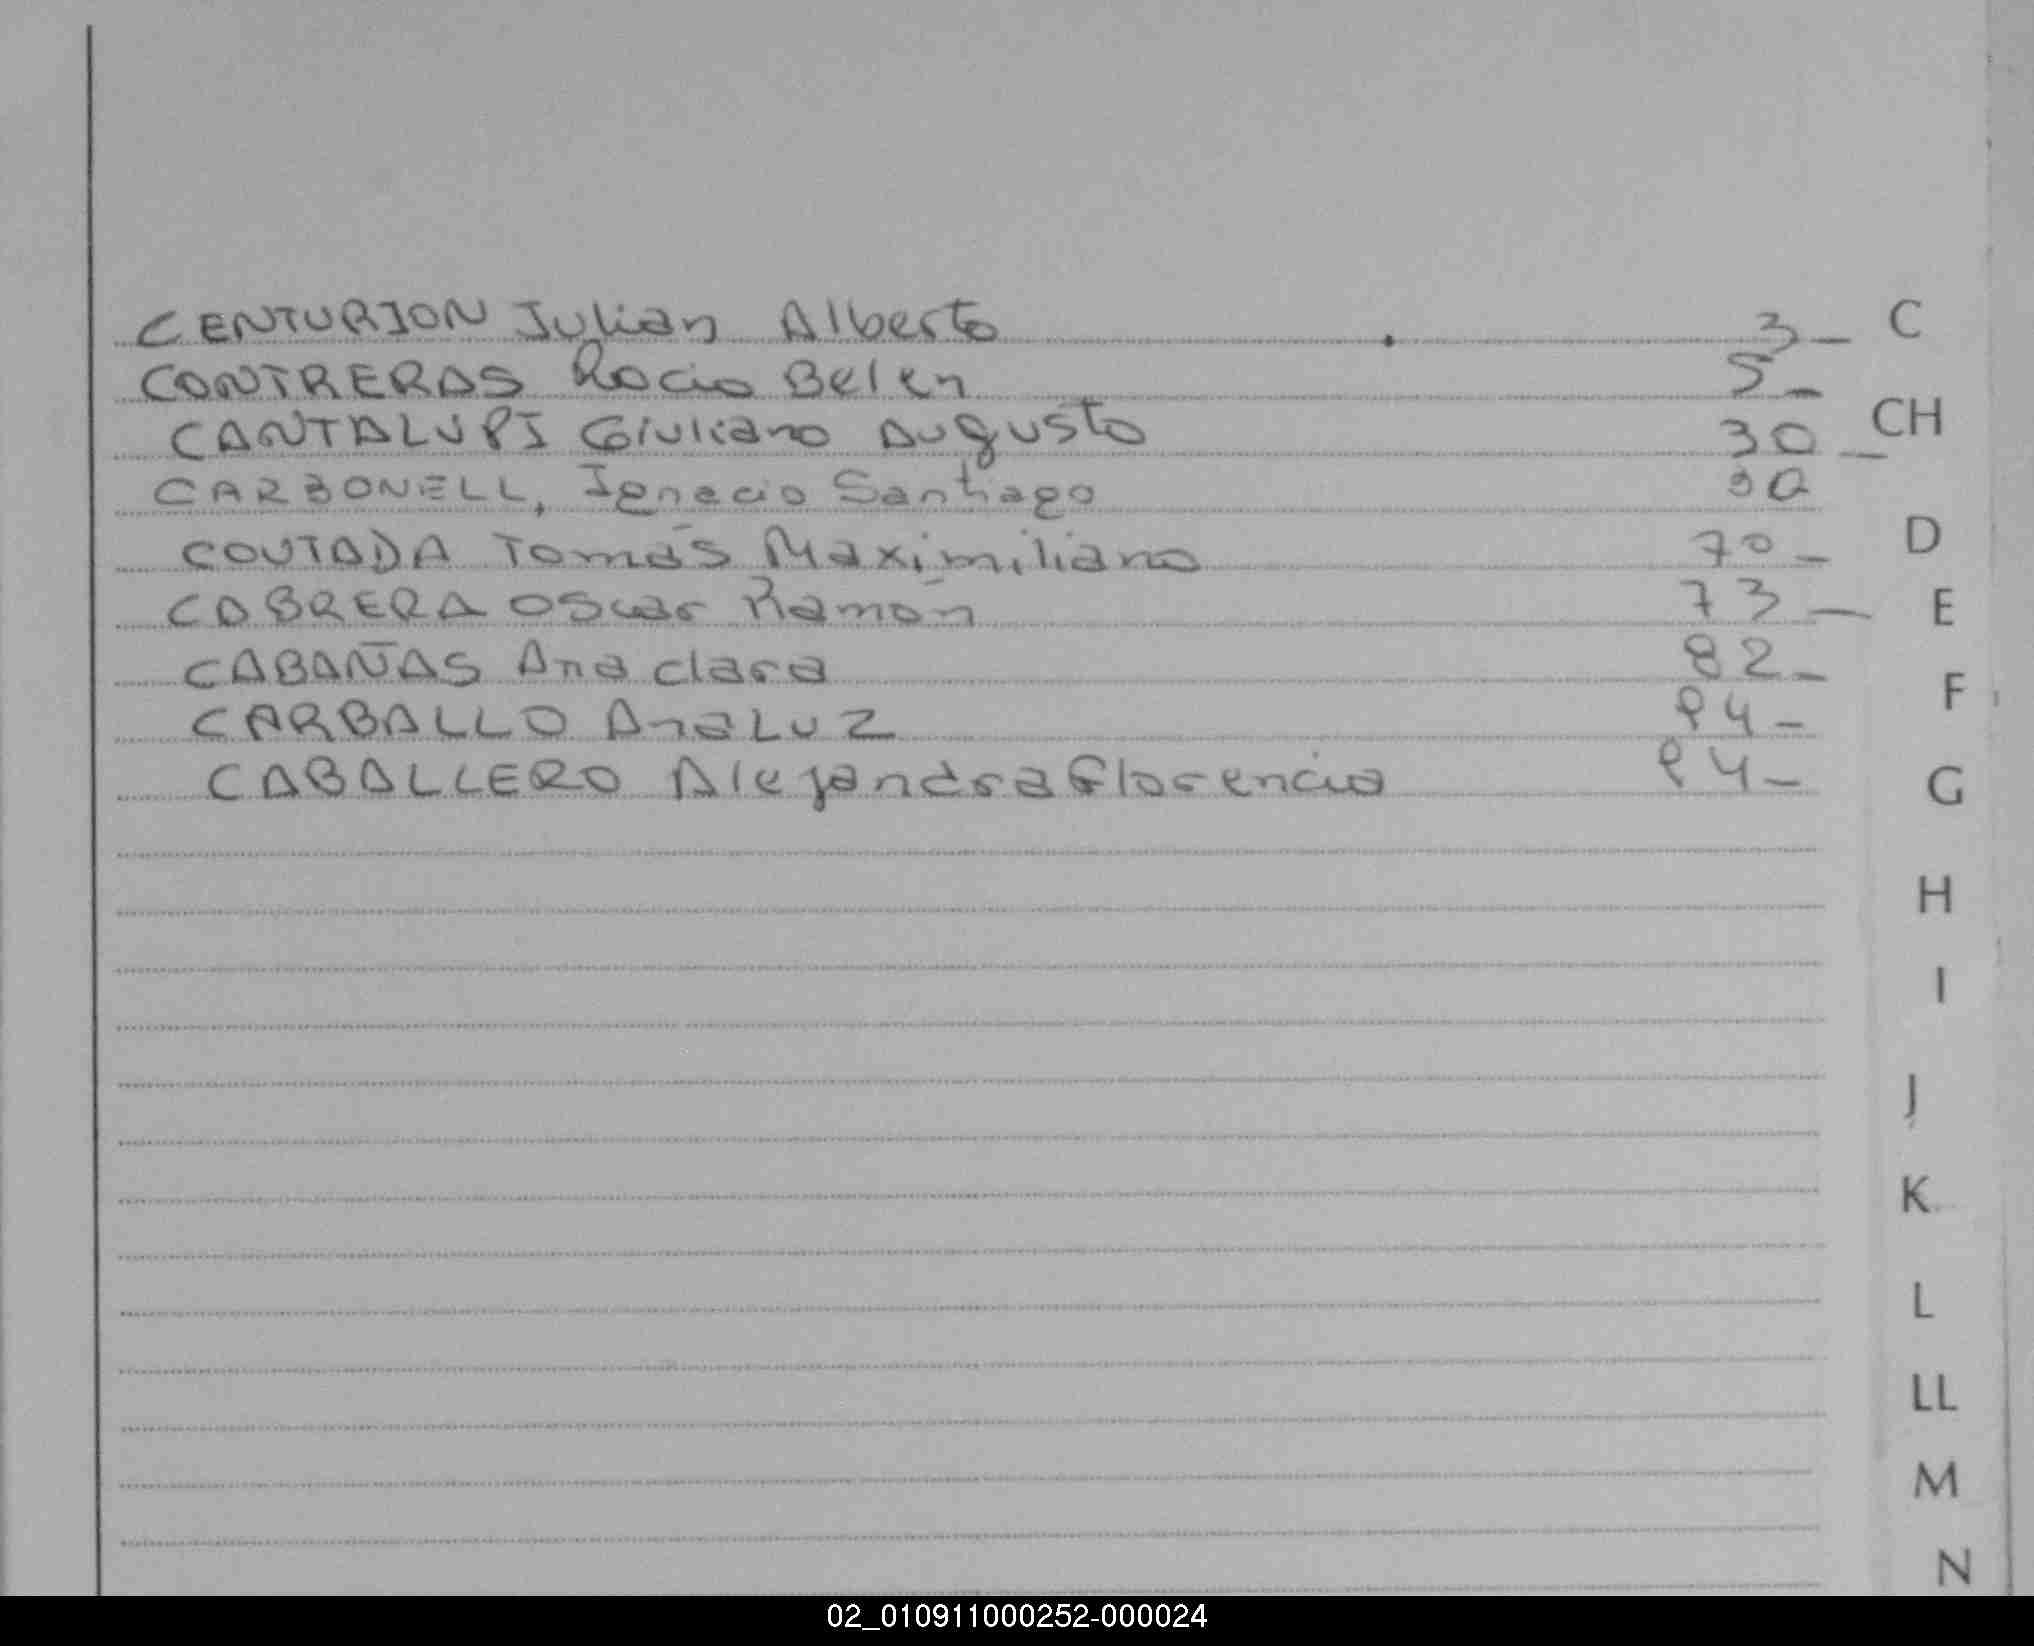 CENTURION Julian Alberto 3 _ C
CONTRERAS Rocio Belen 5 _
CANTALUPI Giuliano Augusto 30 _ CH
CARBONELL, Ignacio Santiago 30
COUTADA Tomás Maximiliano 70 _ D
CABRERA Oscar Ramón 73 _ E
CABAÑAS Ana clara 82 _
CARBALLO Ana Luz 94 _ F
CABALLERO Alejandra Florencia 94 _ G
H
I
J
K
L
LL
M
N
02_010911000252-000024